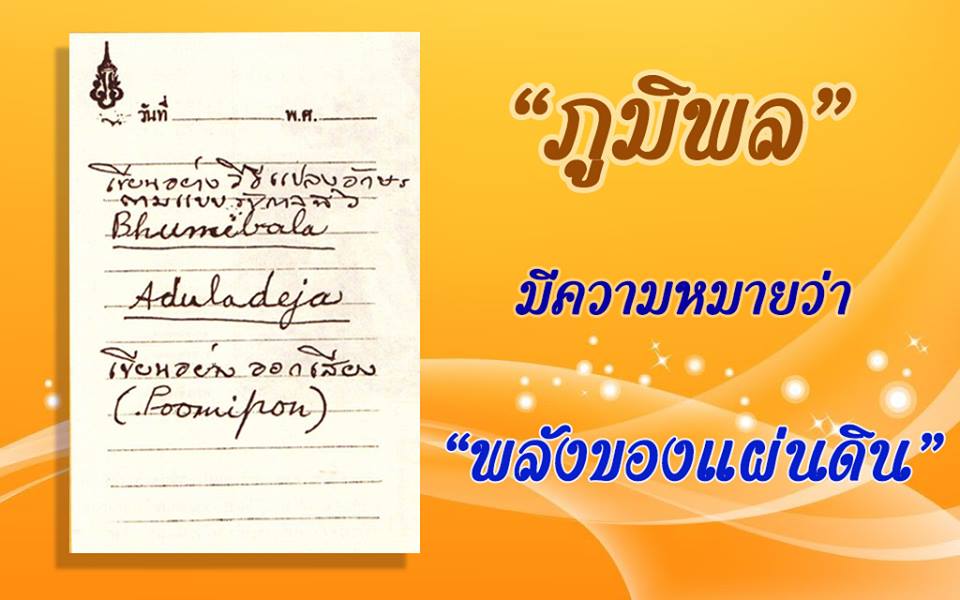 วันที่ พ.ศ.
เขียนอย่าง วิธีแปลงอักษร
ตามแบบ รัชกาลที่ ๖
Bhumibala
Aduladeja
เขียนอย่าง ออกเสียง
(Poomipon)
“ภูมิพล”
มีความหมายว่า
“พลังของแผ่นดิน”